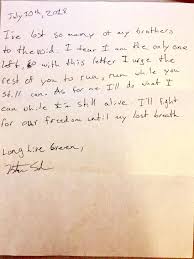 July 10th, 2018
I've lost so many of my brothers
to the void. I fear I am the only one
left, so with this letter I urge the
rest of you to run, run while you
still can. As for me I'll do what I
can while I'm still alive. I'll fight
for our freedom until my last breath
Long live Green,